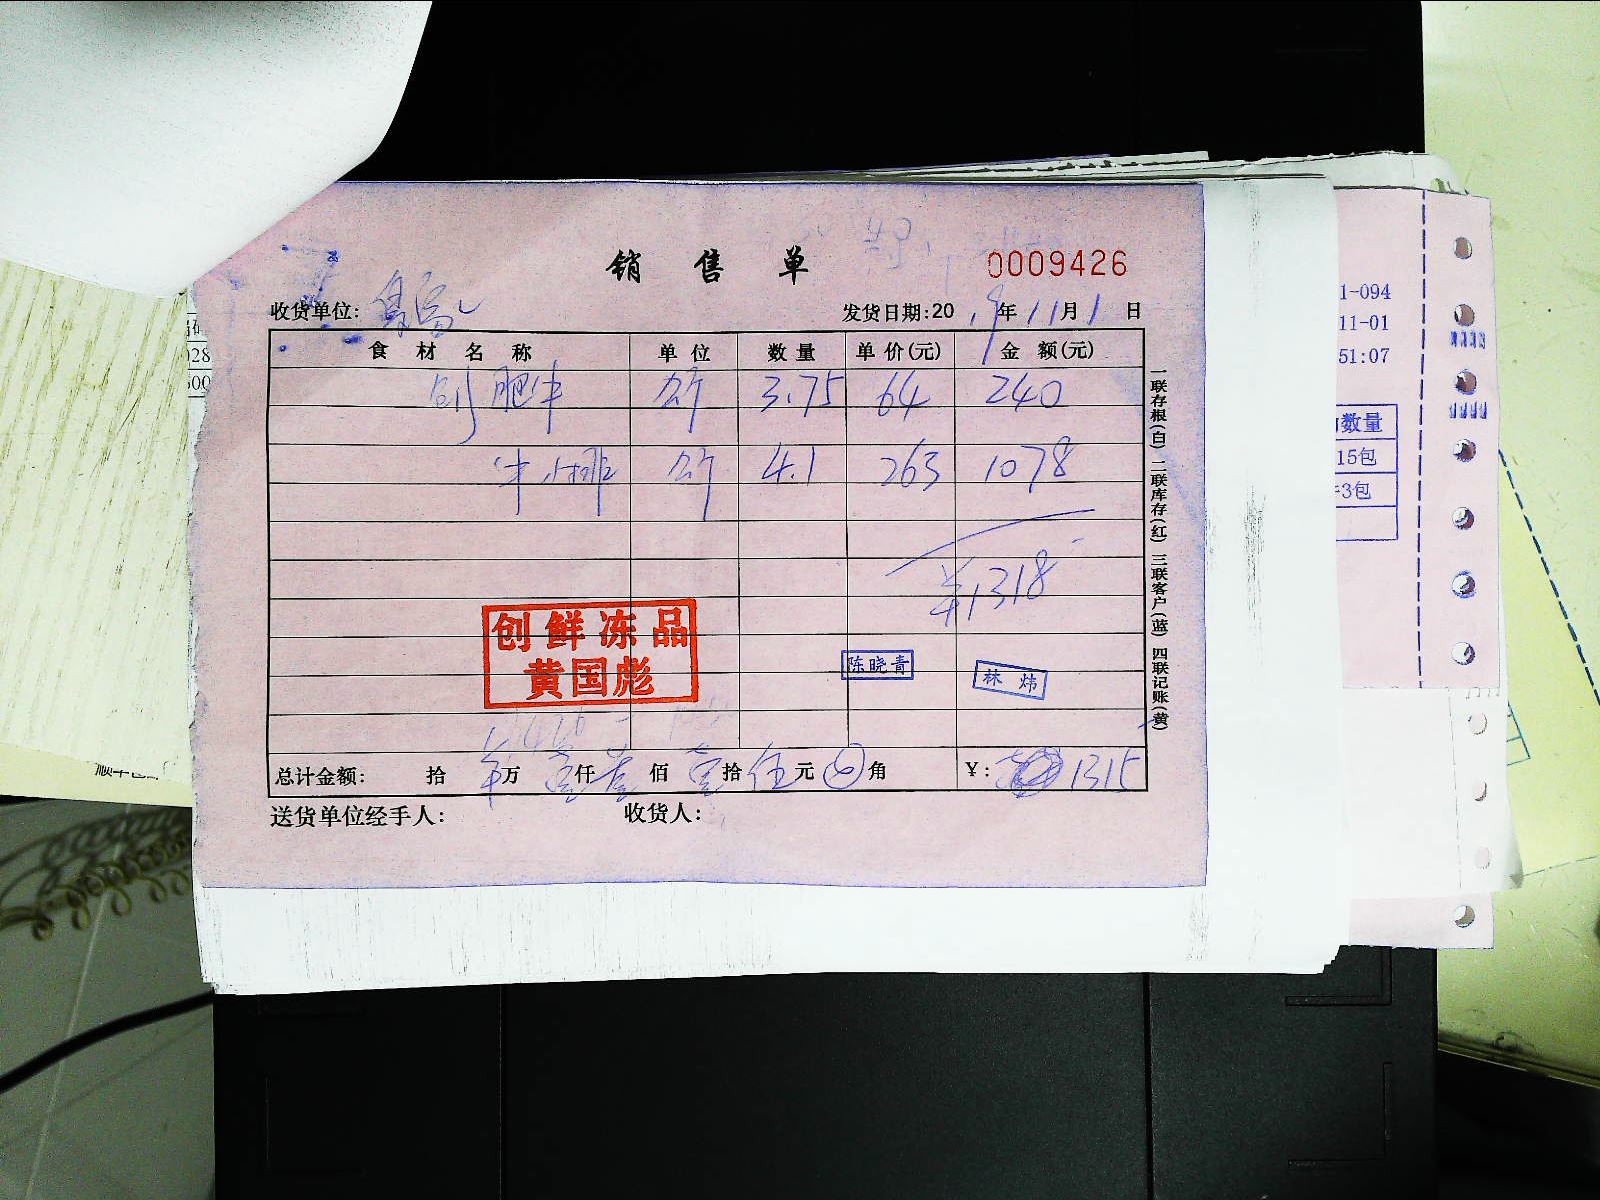 销售单 0009426
收货单位: 发货日期:2019年11月1日
食材名称 单位 数量 单价(元) 金额(元)
肥牛 斤 3.75 64 240
牛小排 斤 4.1 263 1078
¥1318
创鲜冻品
黄国彪
陈晓青
林炜
总计金额: 拾 万壹仟叁佰壹拾伍元 角 ¥: 1315
送货单位经手人: 收货人:
一联存根(白) 二联库存(红) 三联客户(蓝) 四联记账(黄)
1-094
11-01
51:07
数量
15包
3包
028